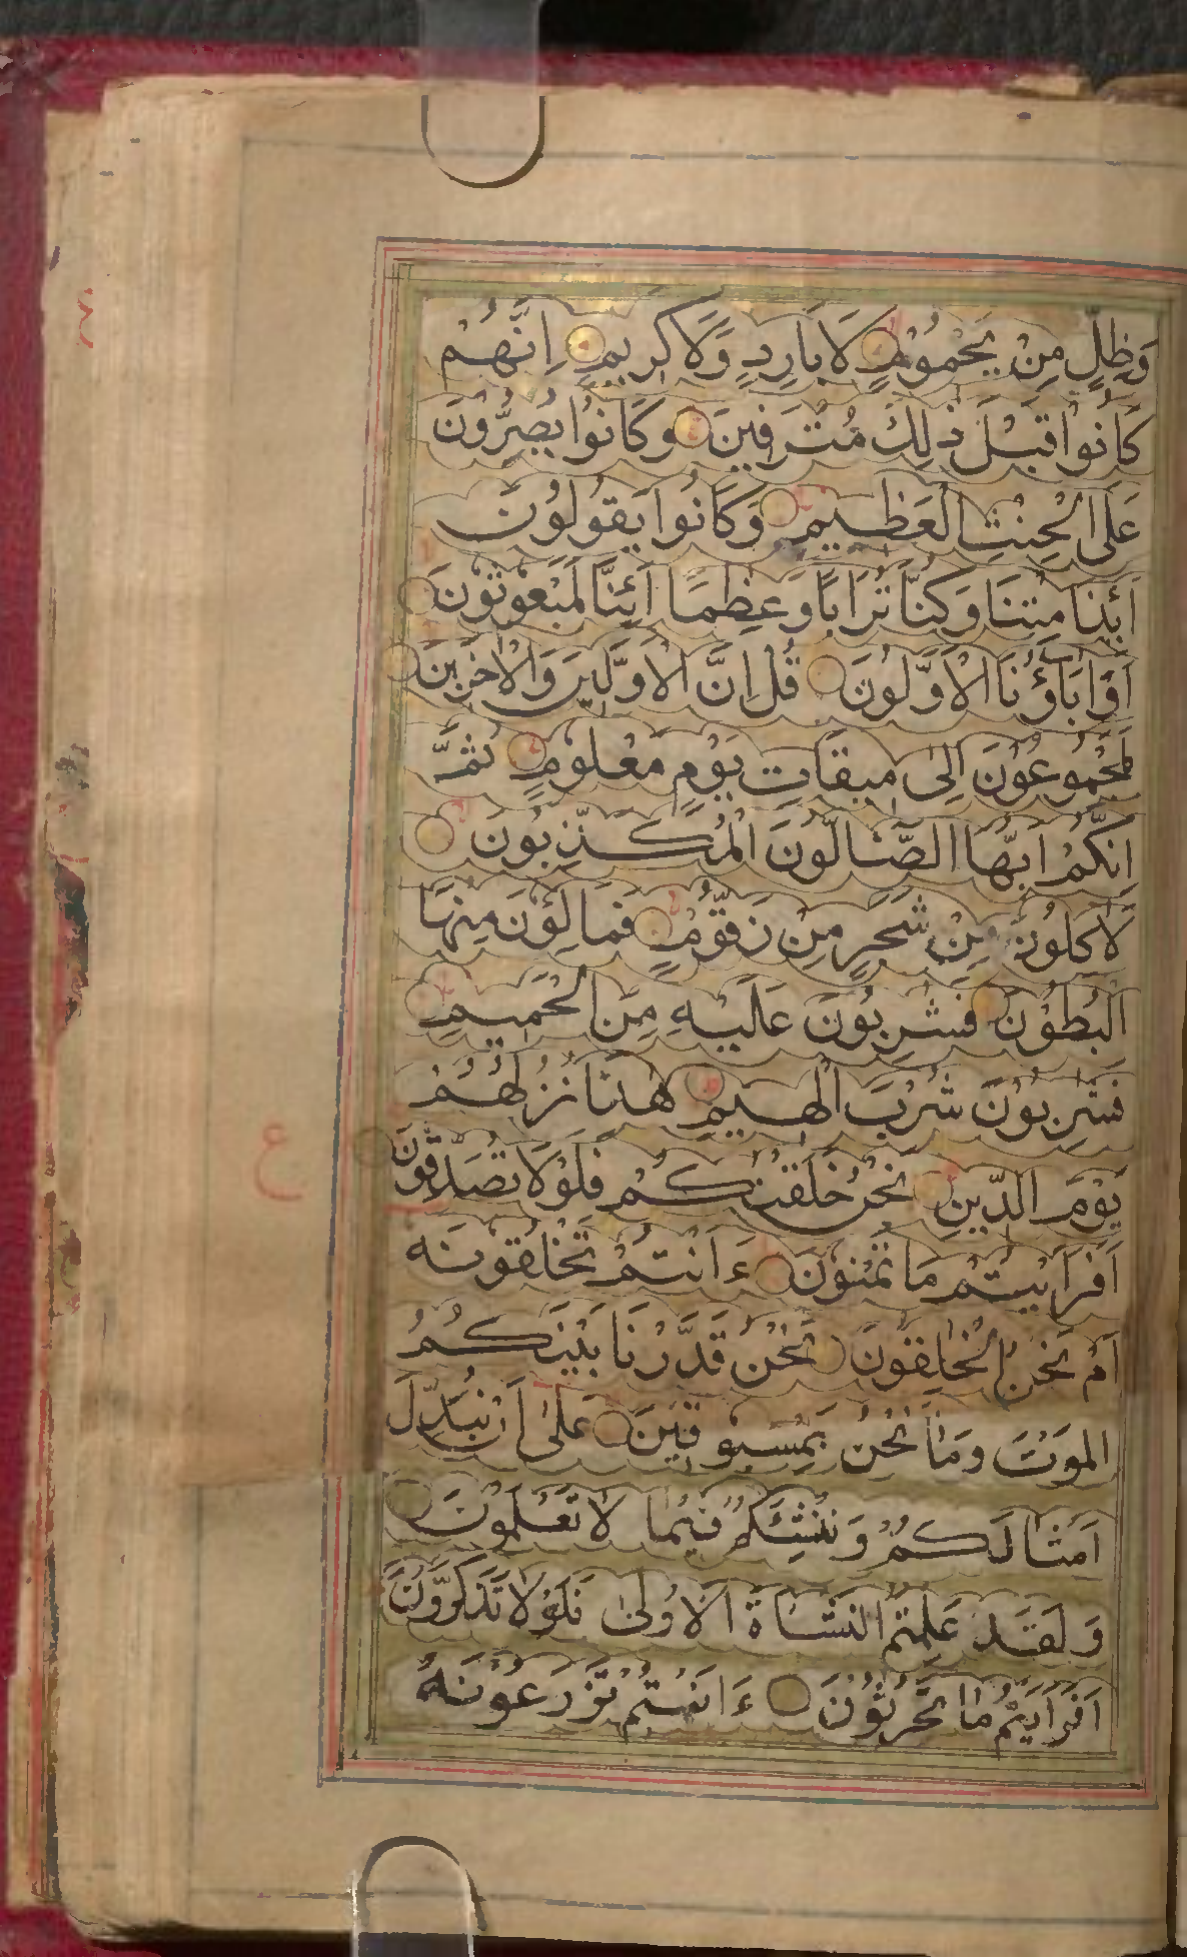 وَظِلٍّ مِنْ يَحْمُوْمٍ لَا بَارِدٍ وَّلَا كَرِيمٍ اِنَّهُمْ
كَانُوْا قَبْلَ ذٰلِكَ مُتْرَفِينَ وَكَانُوْا يُصِرُّونَ
عَلَى الْحِنْثِ الْعَظِيمِ وَكَانُوا يَقُولُونَ
اَئِذَا مِتْنَا وَكُنَّا تُرَابًا وَعِظٰمًا اَئِنَّا لَمَبْعُوثُونَ
اَوَاٰبَاؤُنَا الْاَوَّلُونَ قُلْ اِنَّ الْاَوَّلِينَ وَالْاٰخِرِينَ
لَمَجْمُوعُونَ اِلٰى مِيقَاتِ يَوْمٍ مَعْلُومٍ ثُمَّ
اِنَّكُمْ اَيُّهَا الضَّالُّونَ الْمُكَذِّبُونَ
لَاٰكِلُونَ مِنْ شَجَرٍ مِنْ زَقُّوْمٍ فَمَالِؤُنَ مِنْهَا
الْبُطُوْنَ فَشٰرِبُونَ عَلَيْهِ مِنَ الْحَمِيمِ
فَشٰرِبُونَ شُرْبَ الْهِيمِ هٰذَا نُزُلُهُمْ
يَوْمَ الدِّينِ نَحْنُ خَلَقْنٰكُمْ فَلَوْلَا تُصَدِّقُونَ
اَفَرَاَيْتُمْ مَا تُمْنُونَ ءَاَنْتُمْ تَخْلُقُونَهُ
اَمْ نَحْنُ الْخَالِقُونَ نَحْنُ قَدَّرْنَا بَيْنَكُمُ
الْمَوْتَ وَمَا نَحْنُ بِمَسْبُوقِينَ عَلٰى اَنْ نُبَدِّلَ
اَمْثَالَكُمْ وَنُنْشِئَكُمْ فِيْمَا لَا تَعْلَمُونَ
وَلَقَدْ عَلِمْتُمُ النَّشْاَةَ الْاُولٰى فَلَوْلَا تَذَكَّرُونَ
اَفَرَاَيْتُمْ مَا تَحْرُثُوْنَ ءَاَنْتُمْ تَزْرَعُوْنَهُ
ع